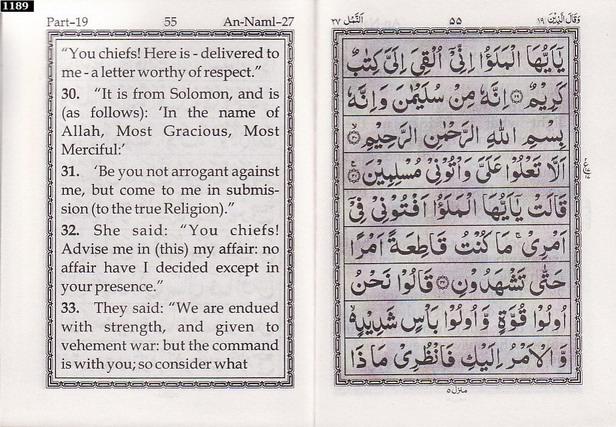 1189
Part-19 55 An-Naml-27
“You chiefs! Here is - delivered to
me - a letter worthy of respect.”
30. “It is from Solomon, and is
(as follows): ‘In the name of
Allah, Most Gracious, Most
Merciful:’
31. ‘Be you not arrogant against
me, but come to me in submis-
sion (to the true Religion).”
32. She said: “You chiefs!
Advise me in (this) my affair: no
affair have I decided except in
your presence.”
33. They said: “We are endued
with strength, and given to
vehement war: but the command
is with you; so consider what
وَقَالَ الَّذِيْنَ ١٩ ٥٥ اَلنَّمْل ٢٧
يٰۤاَيُّهَا الْمَلَؤُا اِنِّيْۤ اُلْقِيَ اِلَيَّ كِتٰبٌ
كَرِيْمٌ ۝٢٩ اِنَّهٗ مِنْ سُلَيْمٰنَ وَاِنَّهٗ
بِسْمِ اللّٰهِ الرَّحْمٰنِ الرَّحِيْمِ ۝٣٠
اَلَّا تَعْلُوْا عَلَيَّ وَاْتُوْنِيْ مُسْلِمِيْنَ ۝٣١
قَالَتْ يٰۤاَيُّهَا الْمَلَؤُا اَفْتُوْنِيْ فِيْۤ
اَمْرِيْ ۚ مَا كُنْتُ قَاطِعَةً اَمْرًا
حَتّٰى تَشْهَدُوْنِ ۝٣٢ قَالُوْا نَحْنُ
اُولُوْا قُوَّةٍ وَّاُولُوْا بَاْسٍ شَدِيْدٍ ۙ
وَّالْاَمْرُ اِلَيْكِ فَانْظُرِيْ مَاذَا
منزل ٥